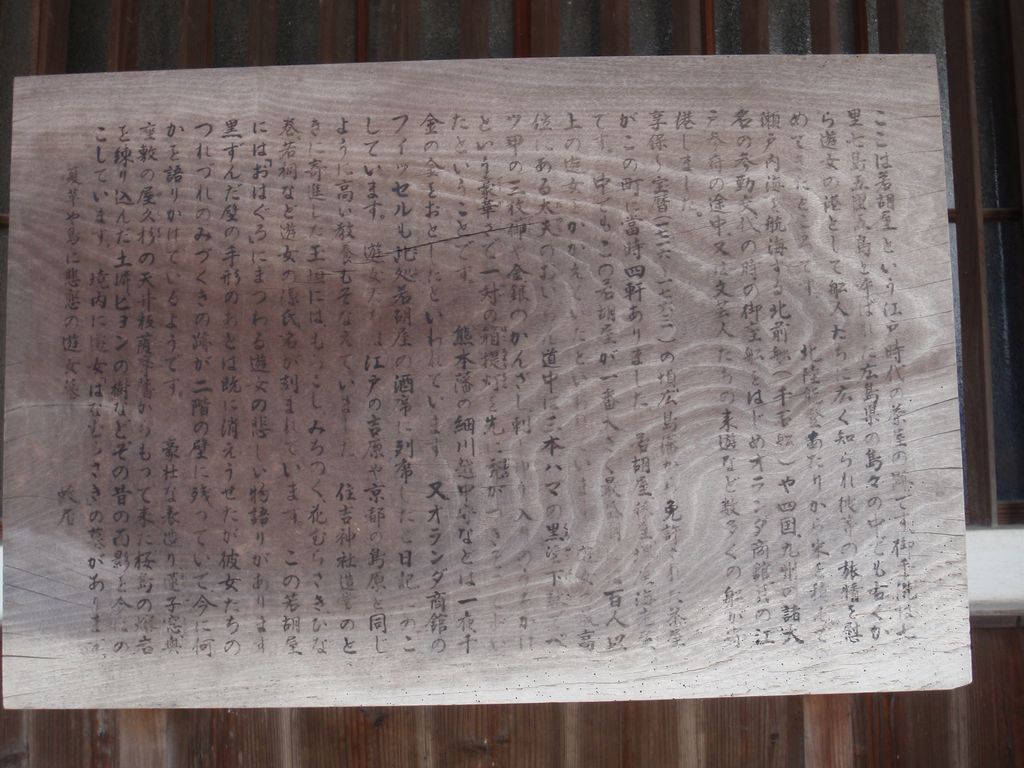 ここは若胡屋という江戸時代の茶屋の跡です。御手洗は七
里七島と呼ばれた広島県の島々の中でも古くか
ら遊女の港として船人たちに広く知られ旅の旅情を慰
めてきたところです。北陸能登あたりから米を積んで
瀬戸内海を航海する北前船(千石船)や四国、九州の諸大
名の参勤交代の時の御座船をはじめオランダ商館の江
戸参府の途中又は文芸人たちの来遊など数多くの船が寄
港しました。
享保〜宝暦の頃広島藩から免許された茶屋
がこの町に当時四軒ありました。若胡屋
です。中でもこの若胡屋が一番大きく最盛期には百人以
上の遊女をかかえていたといわれています。最高
位にある太夫のおいらん道中は三本ハマの黒塗下駄べっ
甲の二枚櫛や金銀のかんざし
という豪華さで一対の箱提灯を先に
たということです。熊本藩の細川越中守などは一夜千
金の金をおとしたといわれています。又オランダ商館の
フイッセルも此処若胡屋の酒席に列席したと日記にのこ
しています。遊女たちは江戸の吉原や京都の島原と同じ
ように高い教養もそなえていました。住吉神社造営のと
きに寄進した玉垣にはもしこ、みちのく、花むらさき、ひな
巻、若桐など遊女の源氏名が刻まれています。この若胡屋
には「おはぐろ」にまつわる遊女の悲しい物語りがあります。
黒ずんだ壁の手形のあとは既に消えうせたが彼女たちの
つれづれのみづくきの跡が二階の壁に残っていて今に何
かを語りかけているようです。豪壮な表造り連子窓奥
座敷の屋久杉の天井板薩摩藩からもって来た桜島の溶岩
を練り込んだ土塀ビヨンの樹などその昔の面影を今に
こしています。境内に遊女はなむらさきの墓があります。
夏草や島に悲恋の遊女墓